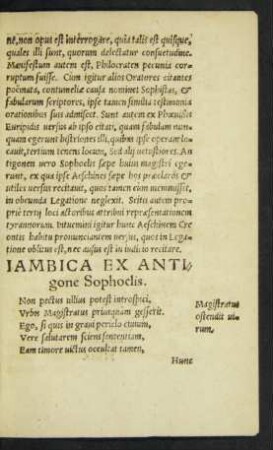 né, non opus est interrogare, quia talis est quisque,
quales illi sunt, quorum delectatur consuetudine.
Manifestum autem est, Philocratem pecunia cor-
ruptum fuisse. Cùm igitur alios Oratores citantes
poëmata, contumeliæ causa nominet Sophistas, &
fabularum scriptores, ipse tamen similia testimonia
orationibus suis admiscet. Sunt autem ex Phœnice
Euripidis versus ab ipso citati, quam fabulam nun-
quam egerunt histriones illi, quibus ipse operam lo-
cauit, tertium tenens locum, sed alij uetustiores. An
tigonen uero Sophoclis sepe huius magistri ege-
runt, ex qua ipse Aeschines sepe hos præclaros &
utiles uersus recitauit, quos tamen cum meminisset,
in obeunda Legatione neglexit. Scitis autem pro-
priè tertij loci actoribus attribui repræsentationem
tyrannorum. Intuemini igitur hunc Aeschinem Cre
ontis habitu pronunciantem uersus, quos in Lega-
tione oblitus est, nec ausus est in iudicio recitare.
IAMBICA EX ANTI-
gone Sophoclis.
Non pectus ullius potest introspici,
Vrbis Magistratus priusquam gesserit.
Ego, si quis in graui periclo ciuium,
Vere salutarem sciens sententiam,
Eam timore uictus occultat tamen,
Magistratus
ostendit ui-
rum.
Hunc